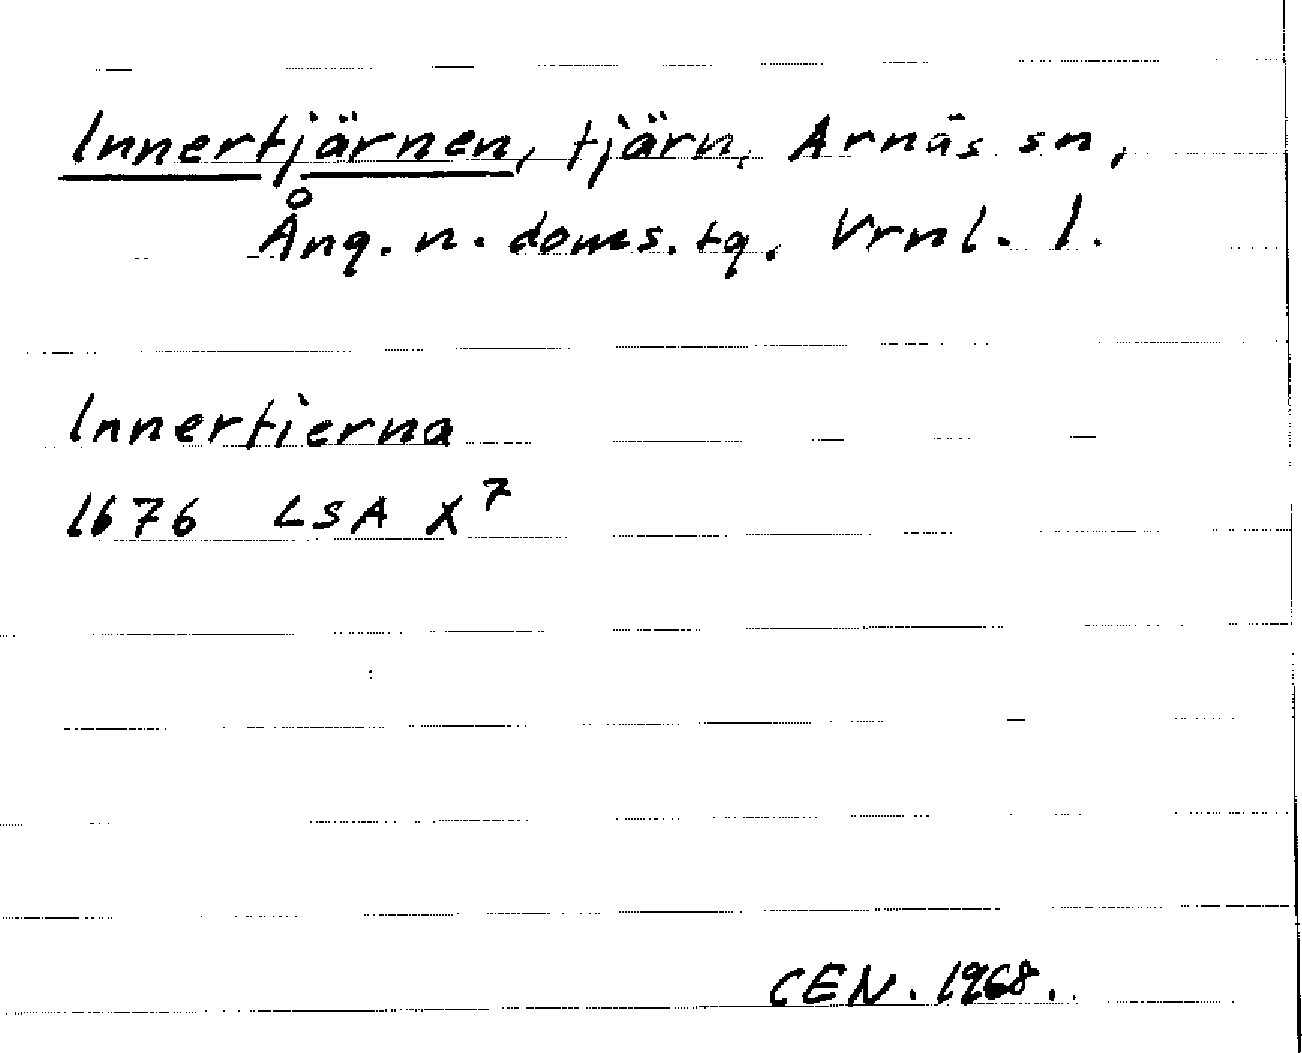 Innertjärnen, tjärn, Arnäs sn,
Ång. n. doms.tg. Vrnl. l.
Innertierna
1676 LSA X7
CEN. 1968.